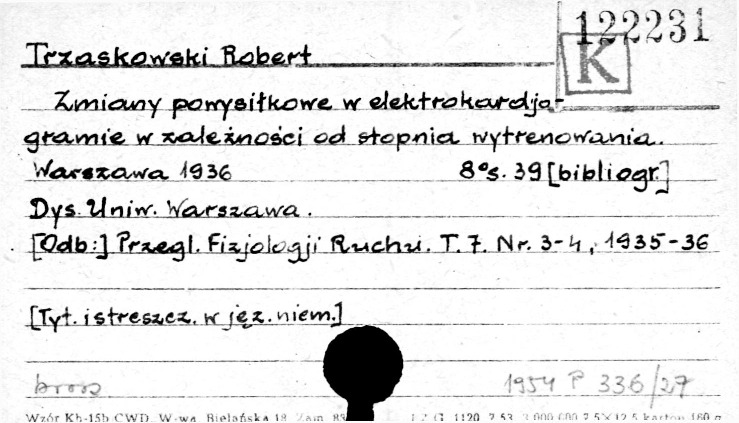 122231
K
Trzaskowski Robert
Zmiany powysiłkowe w elektrokardjo-
gramie w zależności od stopnia wytrenowania.
Warszawa 1936 8°s. 39 [bibliogr.]
Dys. Uniw. Warszawa.
[Odb:] Przegl. Fizjologji Ruchu. T. 7. Nr. 3-4, 1935-36
[Tyt. i streszcz. w jęz. niem.]
brosz. 1954 P 336/27
Wzór Kh-15b CWD, W-wa, Bielańska 18 Zam. G. 1120 7.53 3.000.000 7.5×12.5 karton 160 g